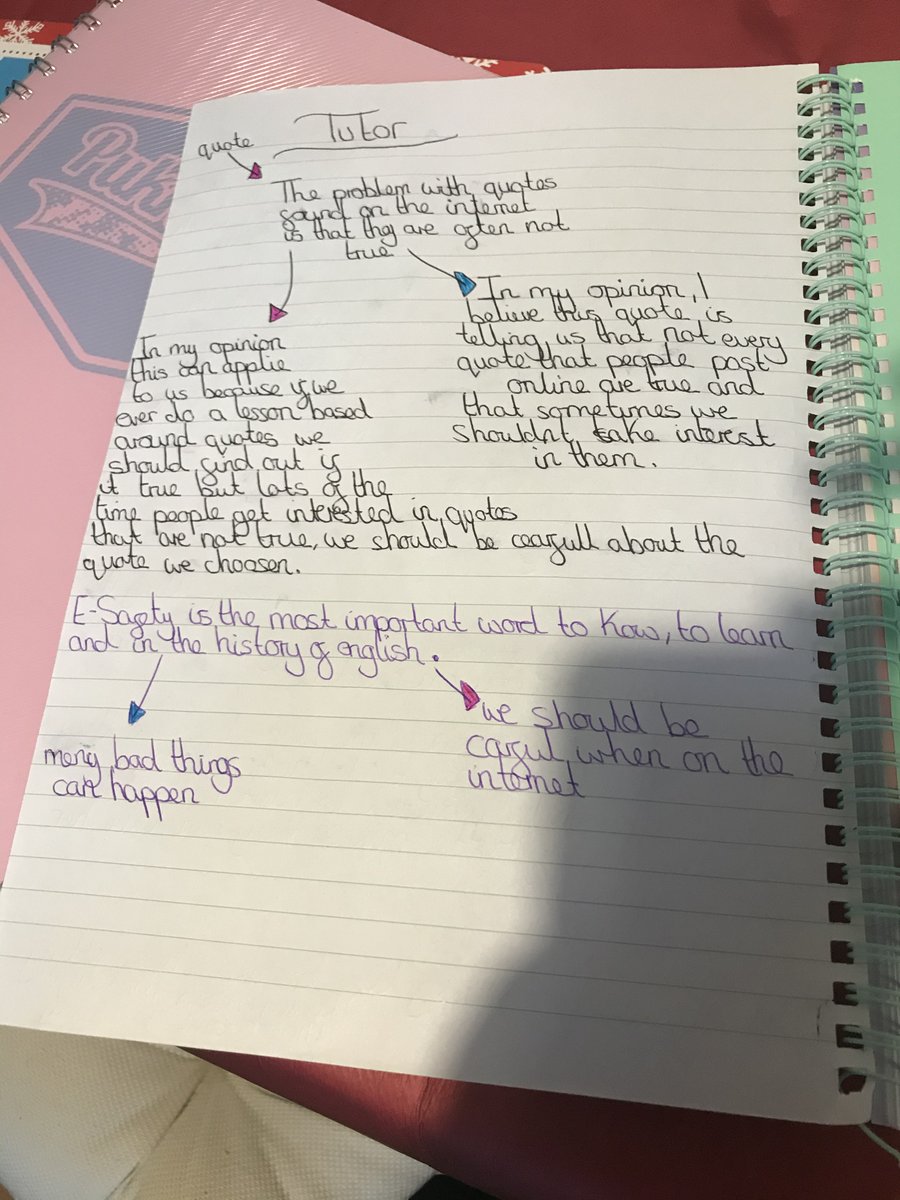 Tutor
quote
The problem with quotes
found on the internet
is that they are often not
true
In my opinion, I
believe this quote is
telling us that not every
quote that people post
online are true and
that sometimes we
shouldnt take interest
in them.
In my opinion
this can applie
to us because if we
ever do a lesson based
around quotes we
should find out if
it true but lots of the
time people get interested in quotes
that are not true, we should be cearfull about the
quote we choosen.
E-Safty is the most important word to Know, to learn
and in the history of english.
meny bad things
can happen
we should be
carful when on the
internet
Puk